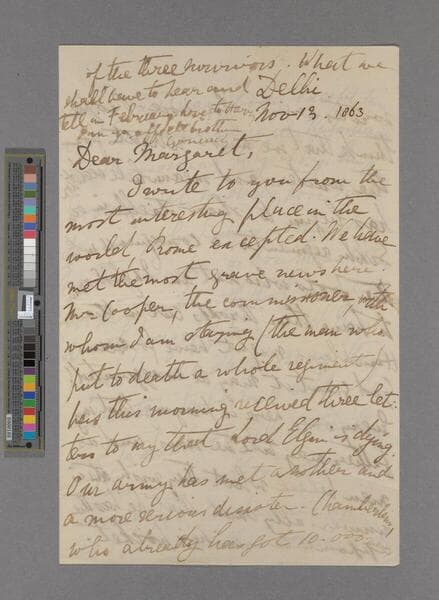 of the three survivors. What we
shall have to hear and Delhi
tell in February, love to Harry Nov 13. 1863
Dear Margaret,
I write to you from the
most interesting place in the
world, Rome excepted. We have
met the most grave news here.
Mr Cooper, the commissioner, with
whom I am staying (the man who
put to death a whole regiment)
has this morning received three let-
ters to say that Lord Elgin is dying.
Our army has met another and
a more serious disaster. Chamberlain,
who already has got 10.000